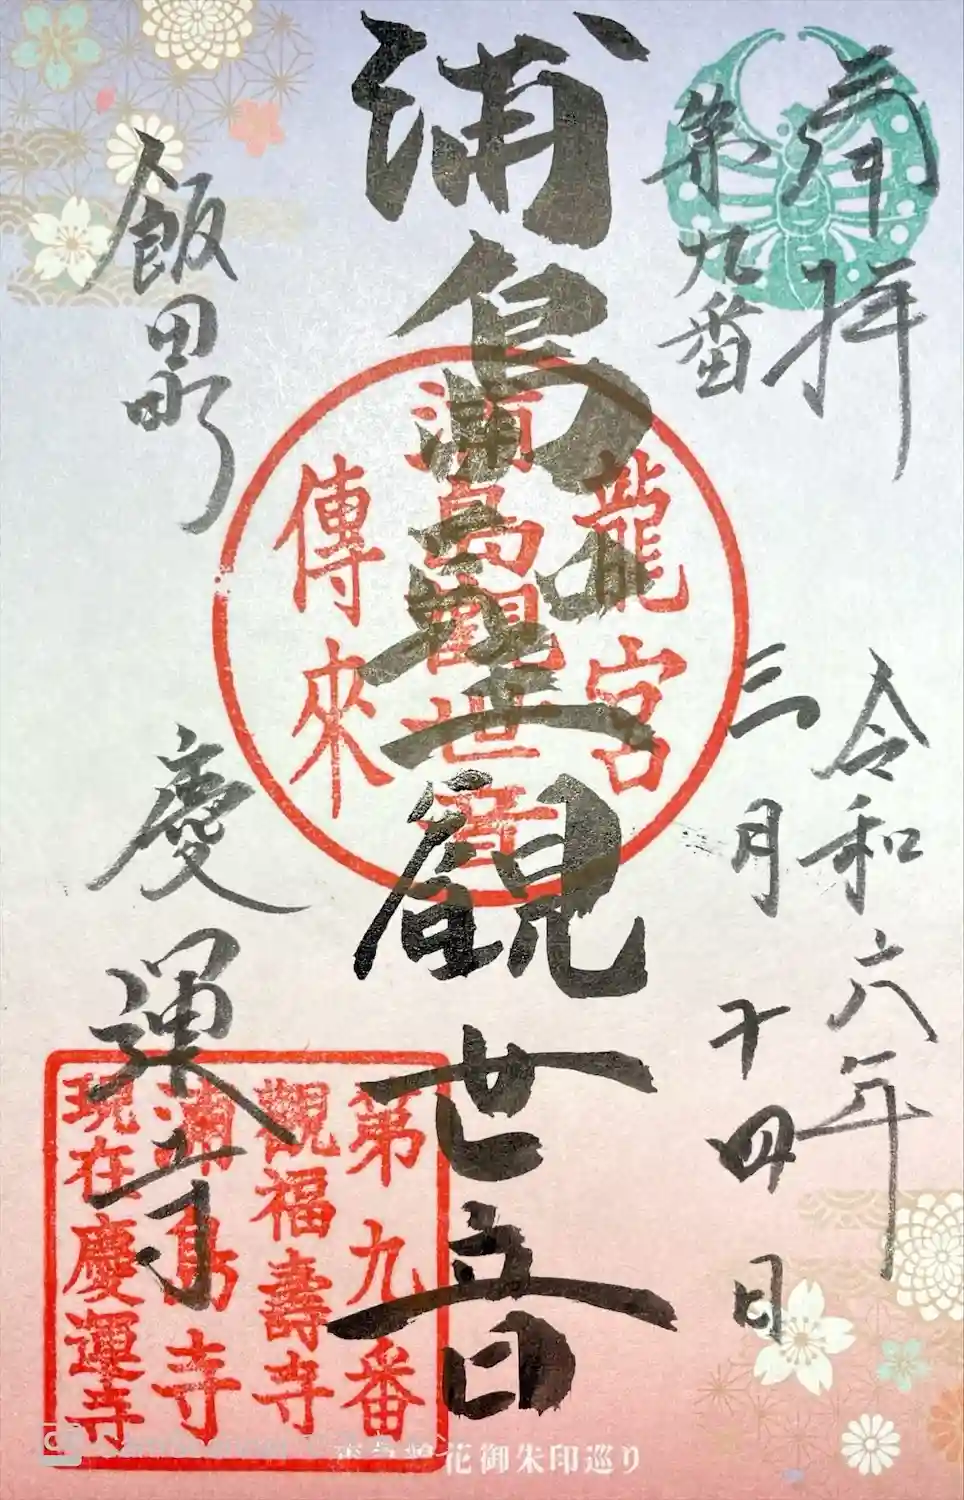 奉拝
第九番
令和六年
三月十四日
浦島聖観世音
龍宮
浦島觀世音
傳來
飯田町
慶運寺
第九番
觀福壽寺
浦島寺
現在慶運寺
花御朱印巡り